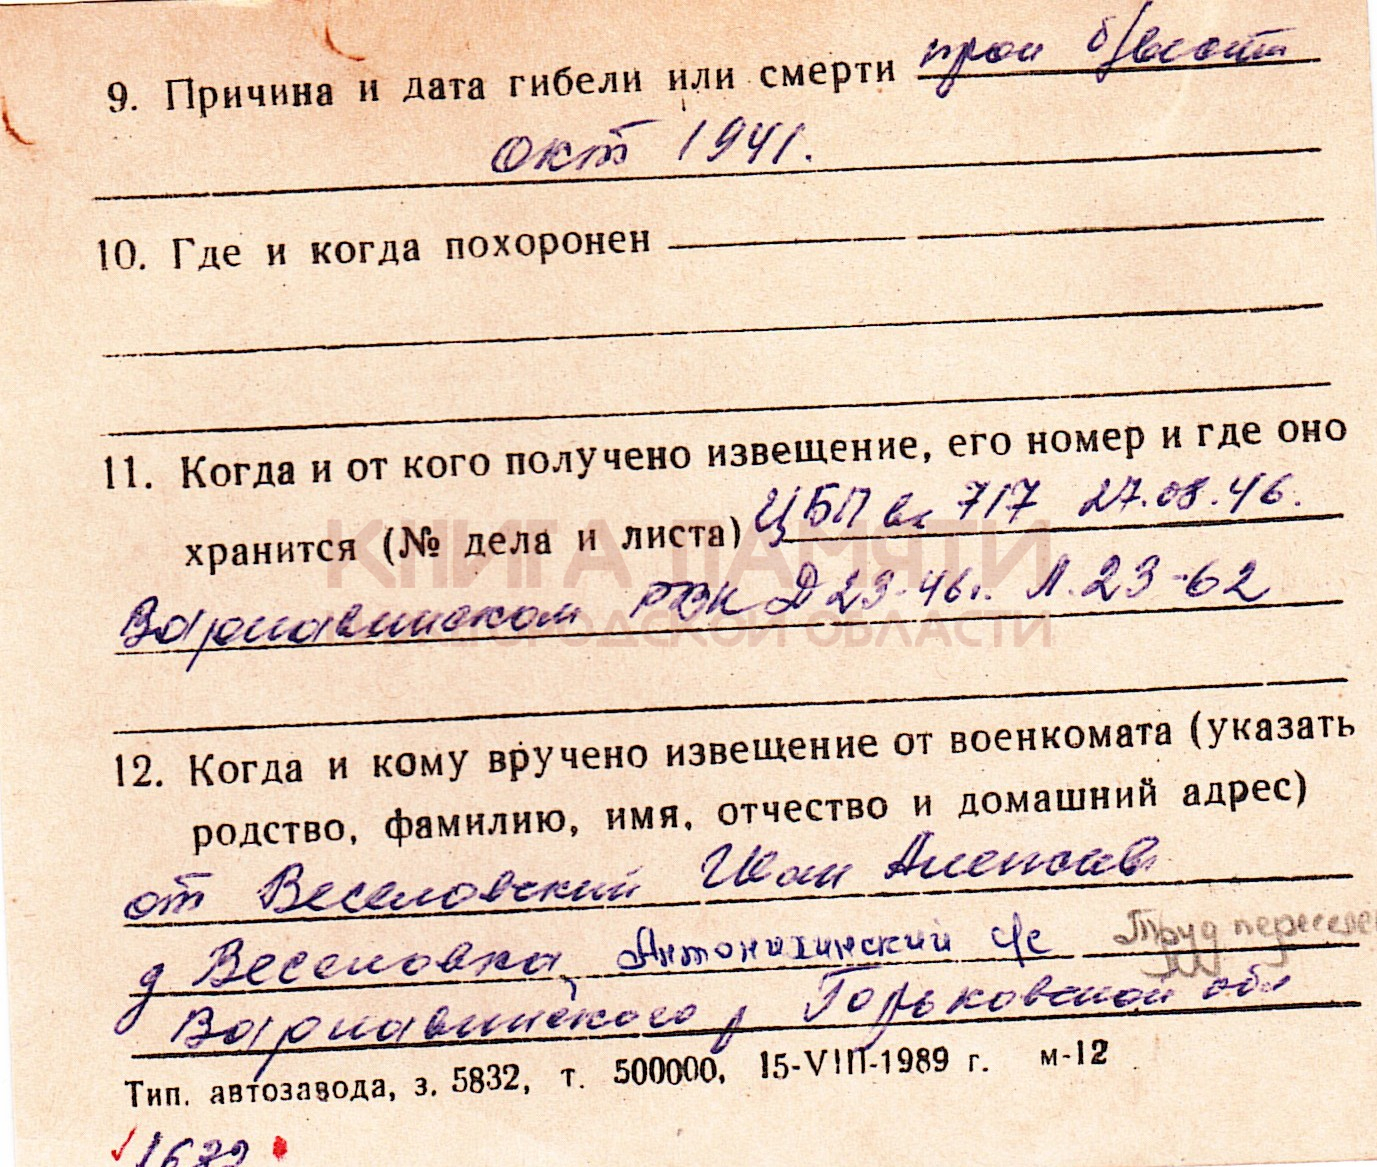 9. Причина и дата гибели или смерти проп б/вести
окт 1941.
10. Где и когда похоронен
11. Когда и от кого получено извещение, его номер и где оно
хранится (№ дела и листа) ЦБП вх 717 27.08.46.
КНИГА ПАМЯТИ
Варнавинском РВК Д 23-46г. Л. 23-62
НИЖЕГОРОДСКОЙ ОБЛАСТИ
12. Когда и кому вручено извещение от военкомата (указать
родство, фамилию, имя, отчество и домашний адрес)
от Веселовский Иван Алексеев
д Веселовка, Антонихинский с/с Труд переселен
Варнавинского р Горьковской обл
Тип. автозавода, з. 5832, т. 500000, 15-VIII-1989 г. м-12
1672